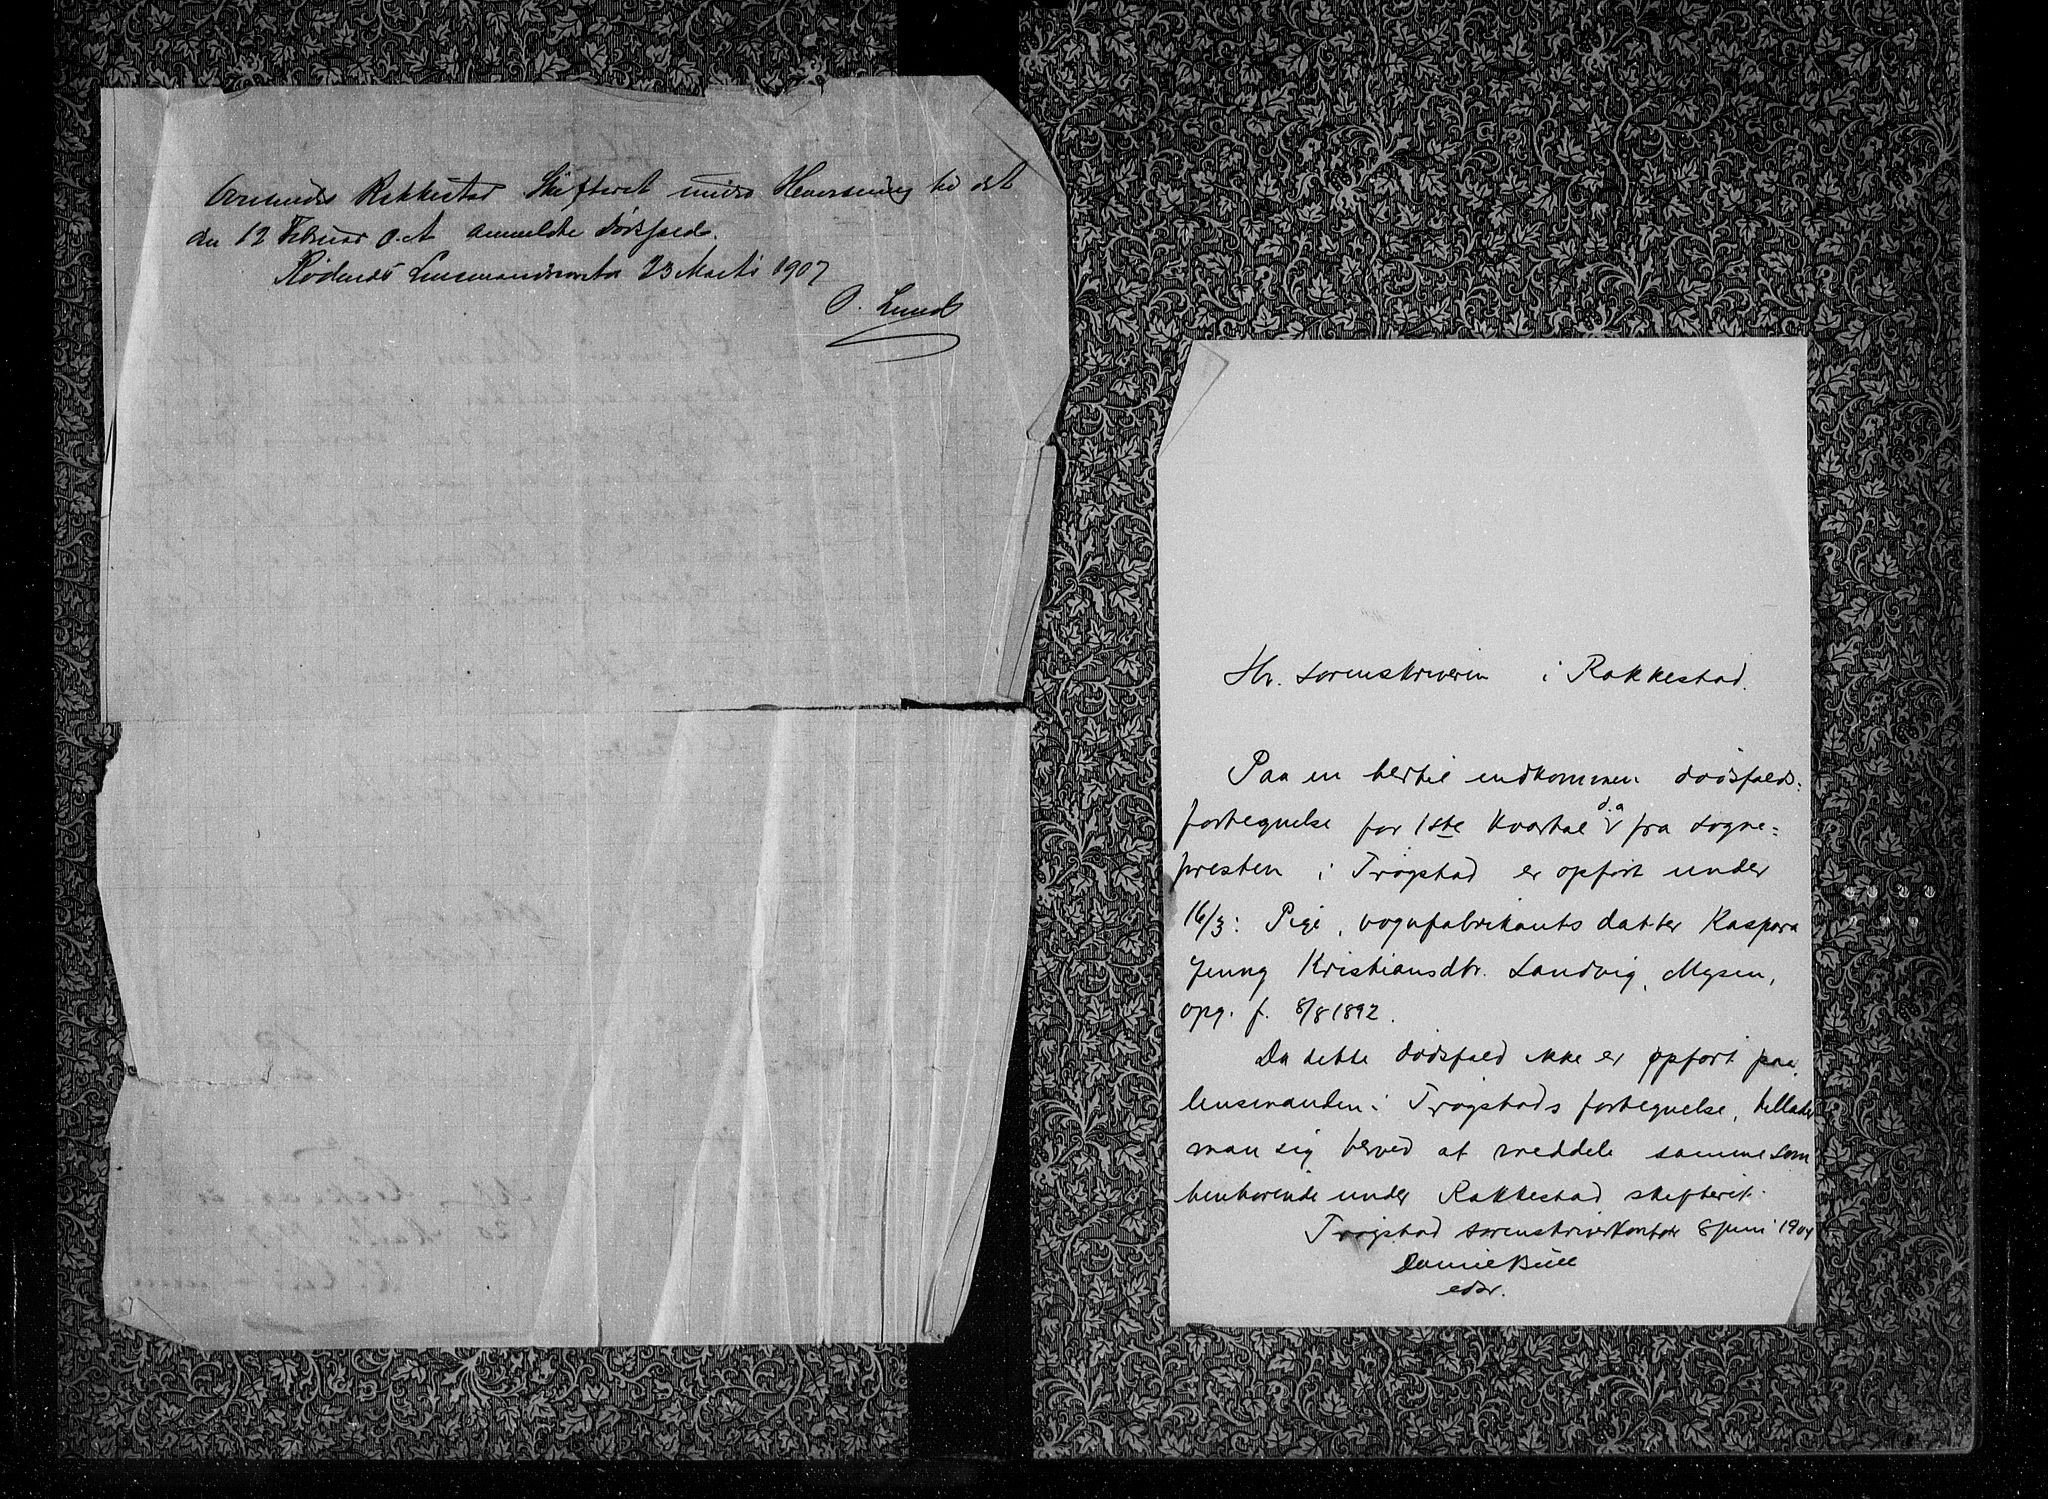 Oversendes Rakkestad Skifteret under Henvisning til det
den 12 Februar d. A anmeldte Dødsfald.
Rødenes Lensmandskontor 23 Marts 1907
O. Lund
Hr. sorenskriveren i Rakkestad.
Paa en hertil indkommen dødsfalds-
fortegnelse for 1ste kvartal d.a fra sogne-
presten i Trøgstad er opført under
16/3: Pige, vognfabrikants datter Kaspara
Jenny Kristiansdtr. Sandvig, Mysen,
opg. f. 8/8 1892.
Da dette dødsfald ikke er opført paa
lensmanden i Trøgstads fortegnelse, tillader
man sig herved at meddele samme som
henhørende under Rakkestad skifteret.
Trøgstad sorenskriverkontor 8 juni 1904
Daniel Bull
edsv.